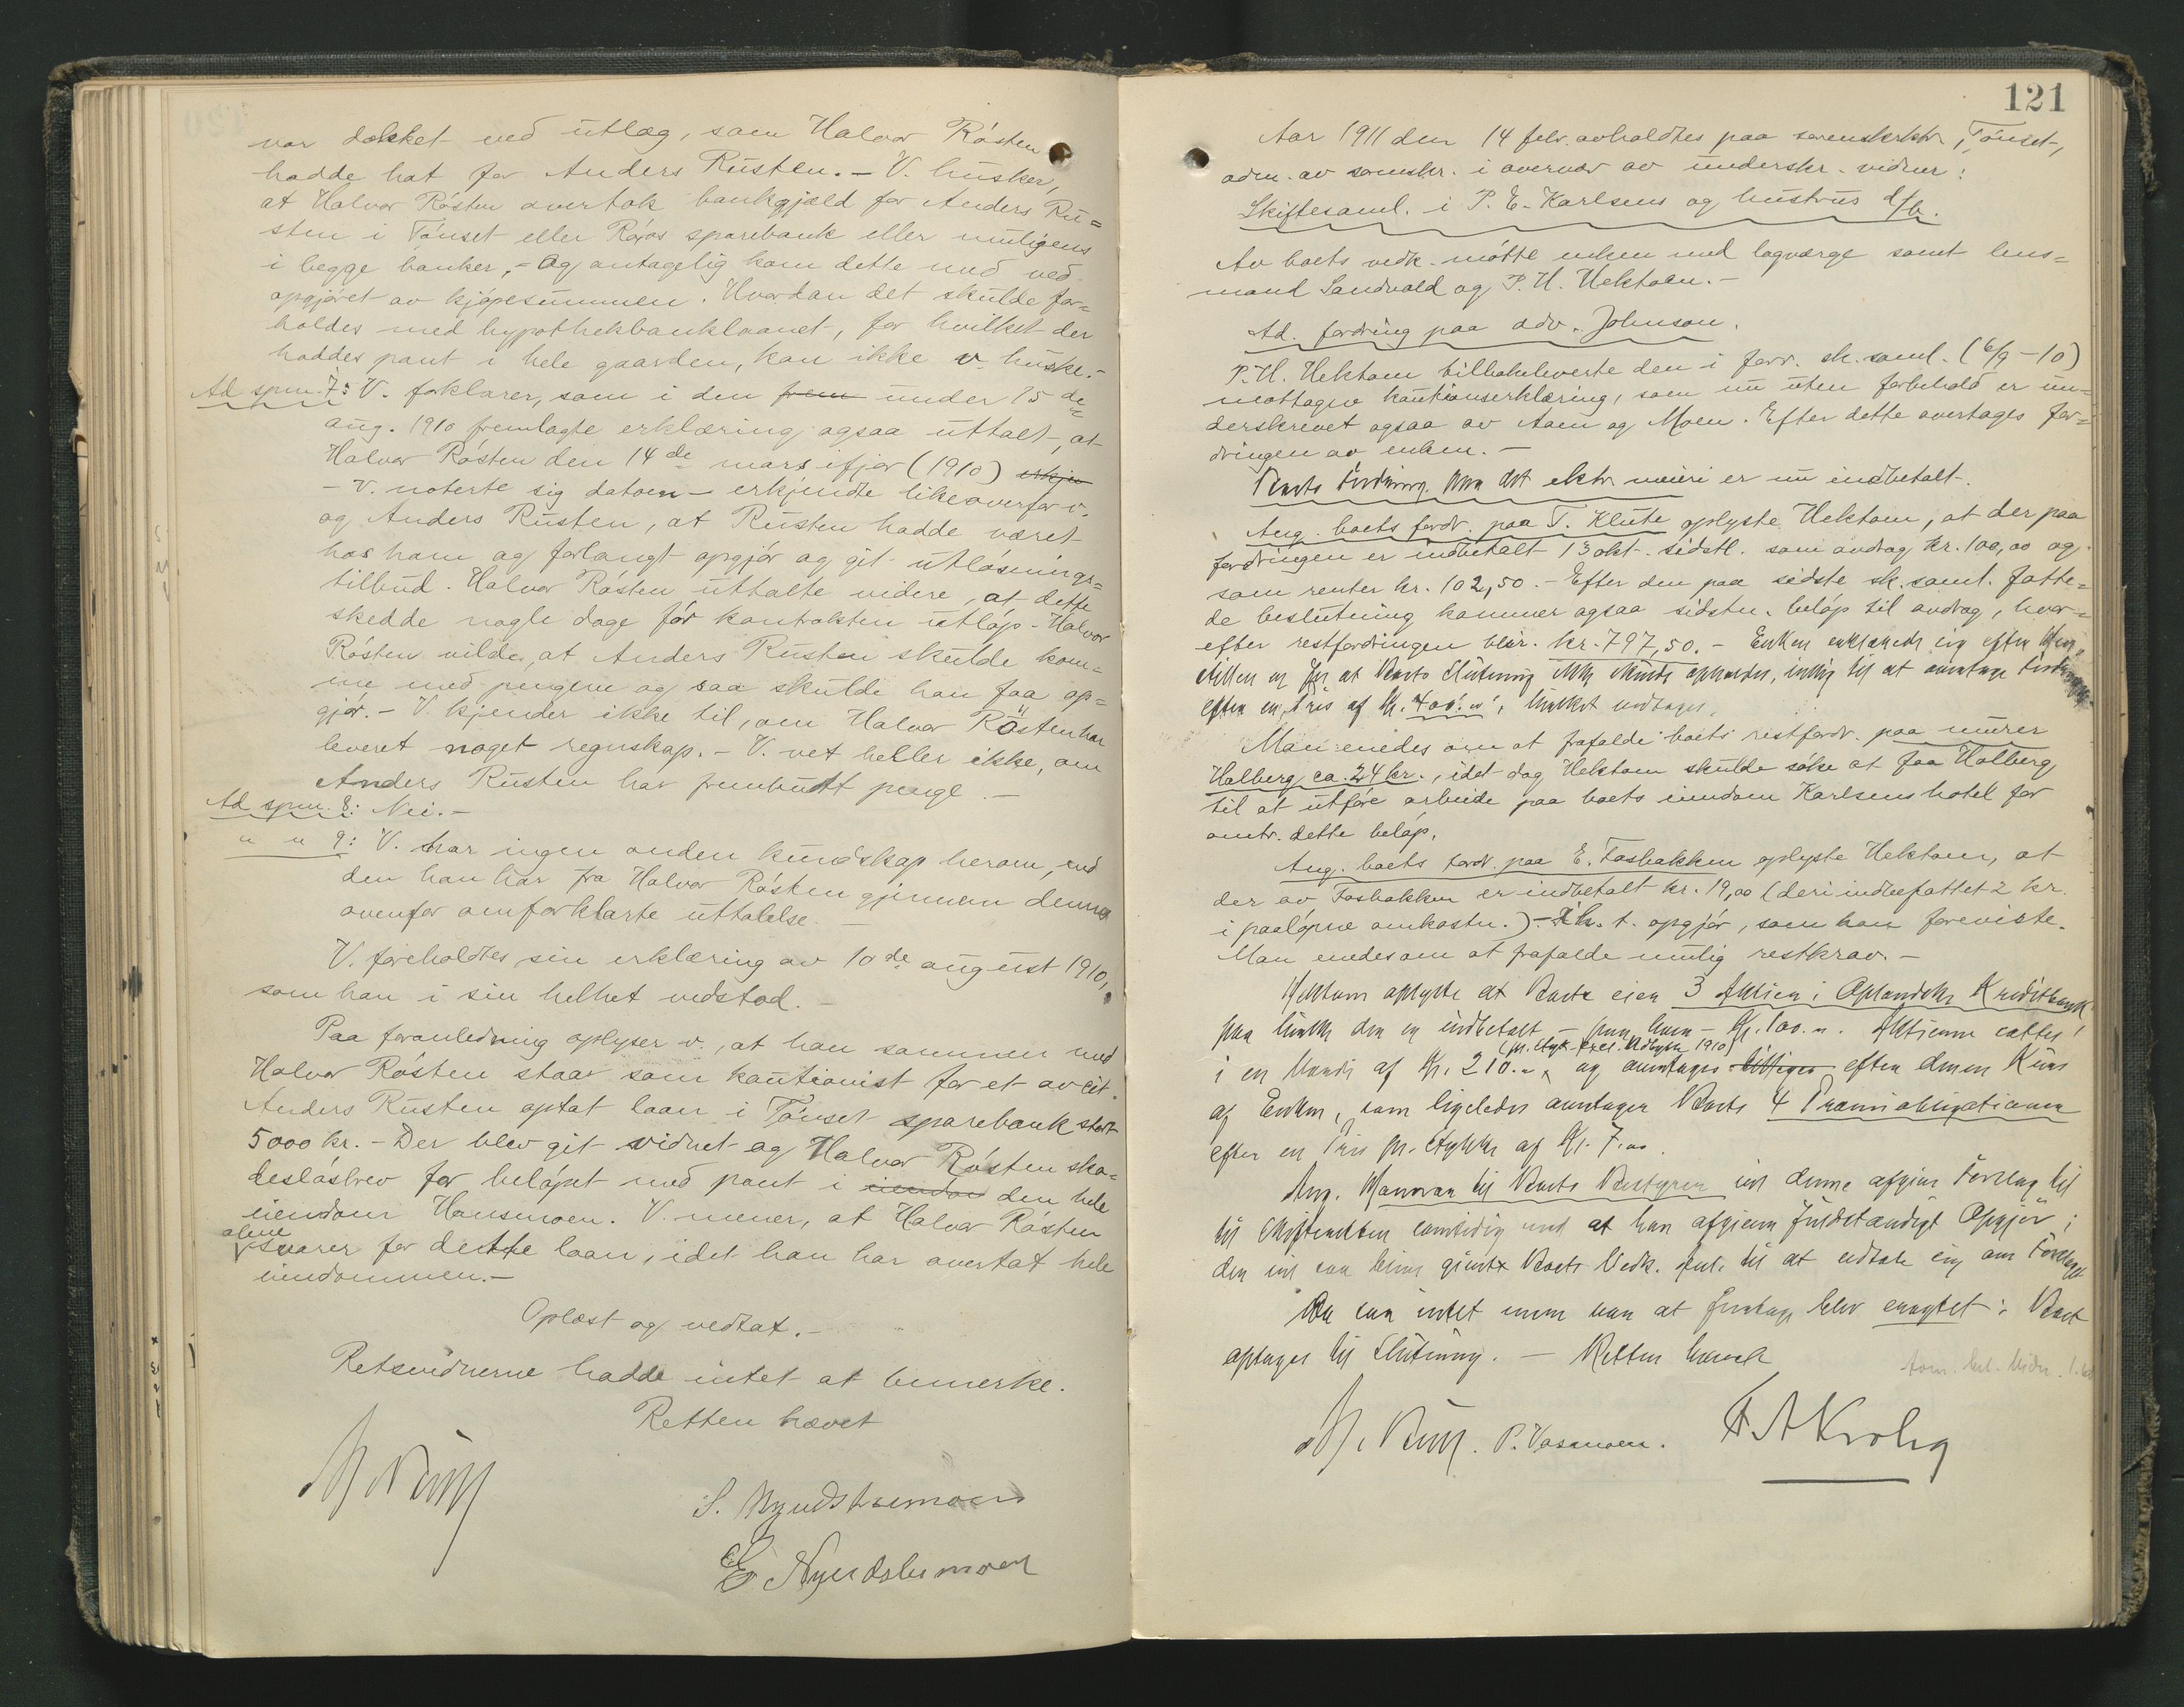 var dækket ved utlæg, som Halvor Røsten
hadde hat for Anders Rusten. – V. husker,
at Halvor Røsten overtok bankgjæld for Anders Ru=
sten i Tønset eller Røros sparebank eller muligens
i begge banker, – og antagelig kom dette med ved
opgjøret av kjøpesummen. Hvordan det skulde for=
holdes med hypothekbanklaanet, for hvilket der
haddes pant i hele gaarden, kan ikke v. huske. –
Ad spm. 7: V. forklarer, som i den frem under 15de
aug. 1910 fremlagte erklæring ogsaa uttalt, at
Halvor Røsten den 14de mars ifjor (1910) erkjen
– v. noterte sig datoen – erkjendte likeoverfor v.
og Anders Rusten, at Rusten hadde været
hos ham og forlangt opgjør og git utløsnings=
tilbud. Halvor Røsten uttalte videre, at dette
skedde nogle dage før kontrakten utløp – Halvor
Røsten vilde, at Anders Rusten skulde kom=
me med pengene og saa skulde han faa op=
gjør. – V. kjender ikke til, om Halvor Røsten har
leveret noget regnskap. – V. vet heller ikke, om
Anders Rusten har frembudt penge. –
Ad spm. 8: Nei. –
" " 9: V. har ingen anden kundskap herom, end
den han har fra Halvor Røsten gjennem denne
ovenfor omforklarte uttalelse. –
V. foreholdtes sin erklæring av 10de august 1910,
som han i sin helhet vedstod. –
Paa foranledning oplyser v., at han sammen med
Halvor Røsten staar som kautionist for et av cit.
Anders Rusten optat laan i Tønset sparebank stort
5000 kr. – Der blev git vidnet og Halvor Røsten ska=
desløsbrev for beløpet med pant i eiendom den hele
eiendom Hansmoen. V. mener, at Halvor Røsten
alene
svarer for dette laan, idet han har overtat hele
eiendommen. –
Oplæst og vedtat. –
Retsvidnerne hadde intet at bemerke.
Retten hævet
S. Nyudstumoen
E Nyudstumoen
121
Aar 1911 den 14 febr. avholdtes paa sorenskrktr., Tønset,
adm. av sorenskr. i overvær av underskr. vidner:
Skiftesaml. i P. E. Karlsens og hustrus d/b.
Av boets vedk. møtte enken med lagværge samt lens=
mand Sandvold og P. H. Hektoen. –
Ad. fordring paa adv. Johnson.
P. H. Hektoen tilbakeleverte den i forr. sk. saml. (6/9 – 10)
mottagne kautionserklæring, som nu uten forbehold er un=
derskrevet ogsaa av Aaen og Moen. Efter dette overtages for=
dringen av enken. –
Boets Fordring paa det elektr meieri er nu indbetalt. –
Ang. boets fordr. paa T. Klute oplyste Hektoen, at der paa
fordringen er indbetalt 13 okt. sidstl. som avdrag kr. 100,00 og
som renter kr. 102,50. – Efter den paa sidste sk. saml. fatte=
de beslutning kommer ogsaa sidstn. beløp til avdrag, hvor=
efter restfordringen blir. kr. 797,50. – Enken erklærede sig efter
for at Boets Slutning ikke skulde opholdes, villig til at overtage Fordringen
efter en Pris af Kr. 400. ", hvilket vedtages.
Man enedes om at frafalde boets restfordr. paa murer
Halberg, ca. 24 kr., idet dog Hektoen skulde søke at faa Holberg
til at utføre arbeide paa boets eiendom Karlsens hotel for
omtr. dette beløp.
Ang. boets fordr. paa E. Fasbakken oplyste Hektoen, at
der av Fosbakken er indbetalt kr. 19,00 (deri indbefattet 2 kr.
i paaløpne omkostn.) – i h. t. opgjør, som han foreviste.
Man enedes om at frafalde mulig restkrav. –
Hektoen oplyste at Boet eier 3 Aktier i Oplandske Kreditbank
paa hvilke der er indbetalt – paa hver – Kr. 100. ". Aktierne sættes
(pr. Styk – excl. Udbytte 1910)
i en Værdi af Kr. 210. " og overtages efter denne Kurs
af Enken, som ligeledes overtager Boets 4 Præmieobligationer
efter en Pris pr. Stykke af Kr. 7.00.
Ang. Honorar til Boets Bestyrer vil denne afgive Forslag til
til Skifteretten samtidig med at han afgiver fuldstændigt Opgjør;
der vil saa blive givet Boets Vedk. Anl. til at udtale sig om Forslaget
Da saa intet mere var at foretage blev eragtet: Boet
optages til Slutning. – Retten hævet
P. Vasmoen. F A Krohg